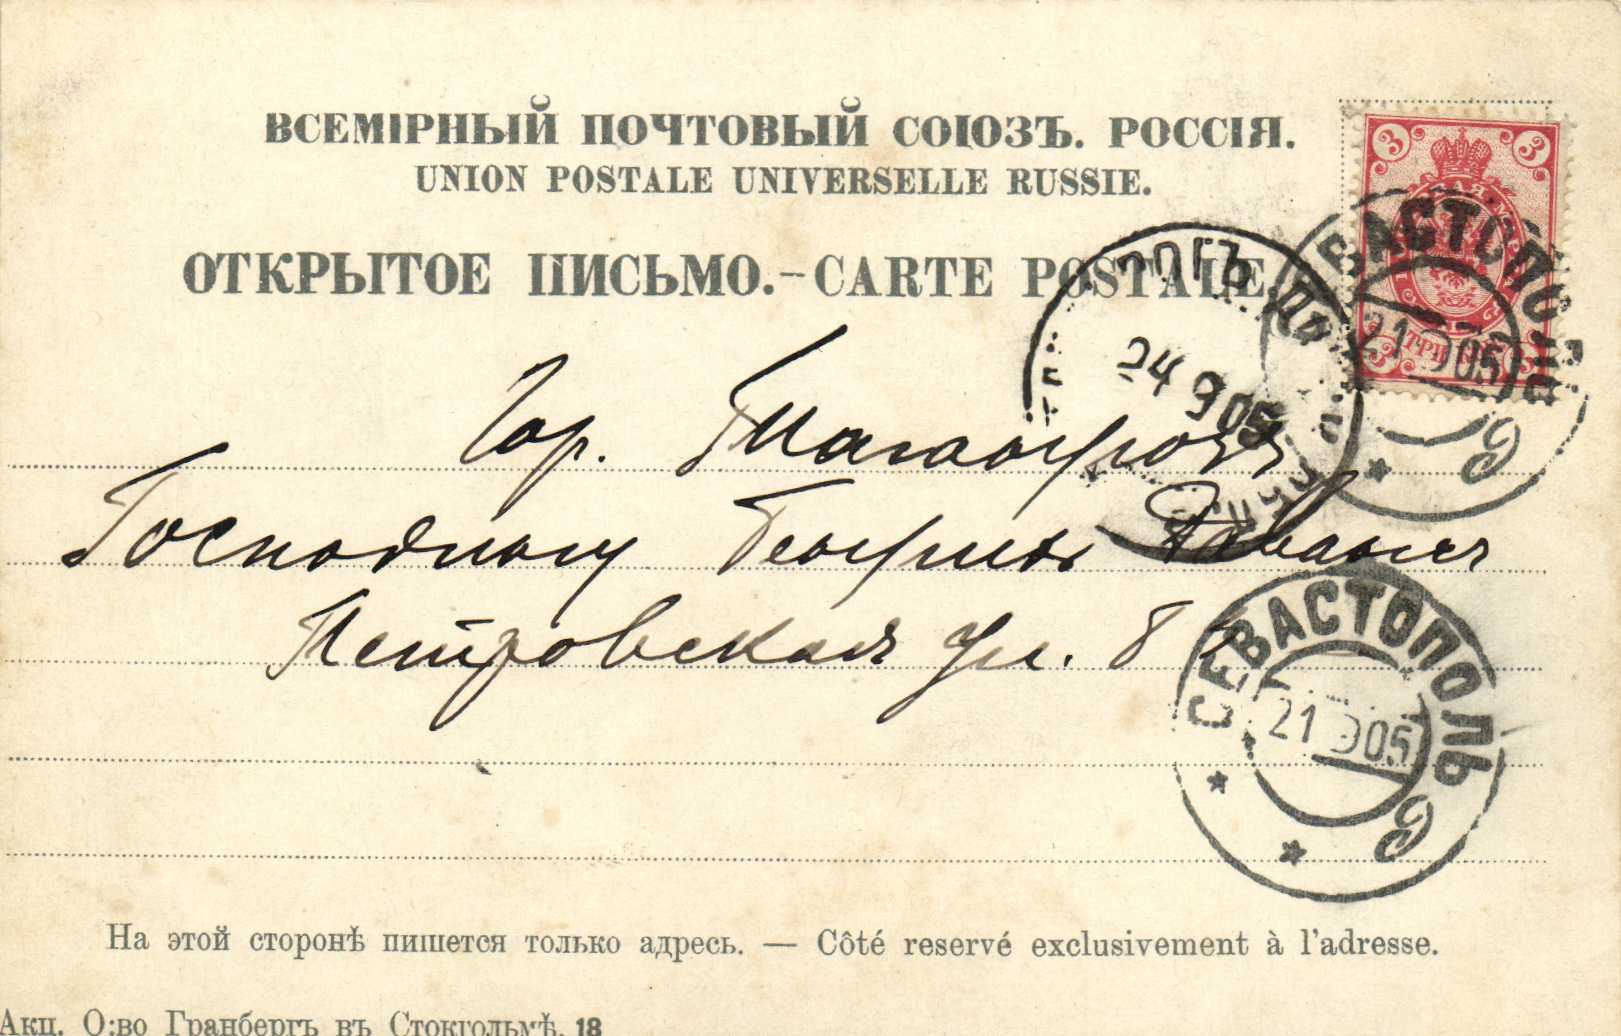 ВСЕМІРНЫЙ ПОЧТОВЫЙ СОЮЗЪ. РОССІЯ.
UNION POSTALE UNIVERSELLE RUSSIE.
ОТКРЫТОЕ ПИСЬМО.–CARTE POSTALE.
3 3
СЕВАСТОПОЛЬ
21 9 05
ТРИ
24 9 05
Гор. Таганрогъ
Господину Георгию
Петровская ул. 8
СЕВАСТОПОЛЬ
21 9 05
На этой сторонѣ пишется только адресь. — Côté reservé exclusivement à l'adresse.
Акц. О:во Гранбергъ въ Стокгольмѣ. 18